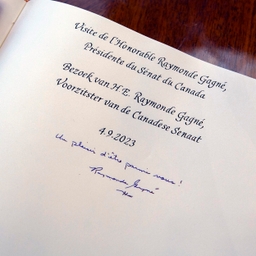 Visite de l'Honorable Raymonde Gagné,
Présidente du Sénat du Canada
Bezoek van H.E. Raymonde Gagné,
Voorzitster van de Canadese Senaat
4.9.2023
Un plaisir d'être parmi vous !
Raymonde Gagné